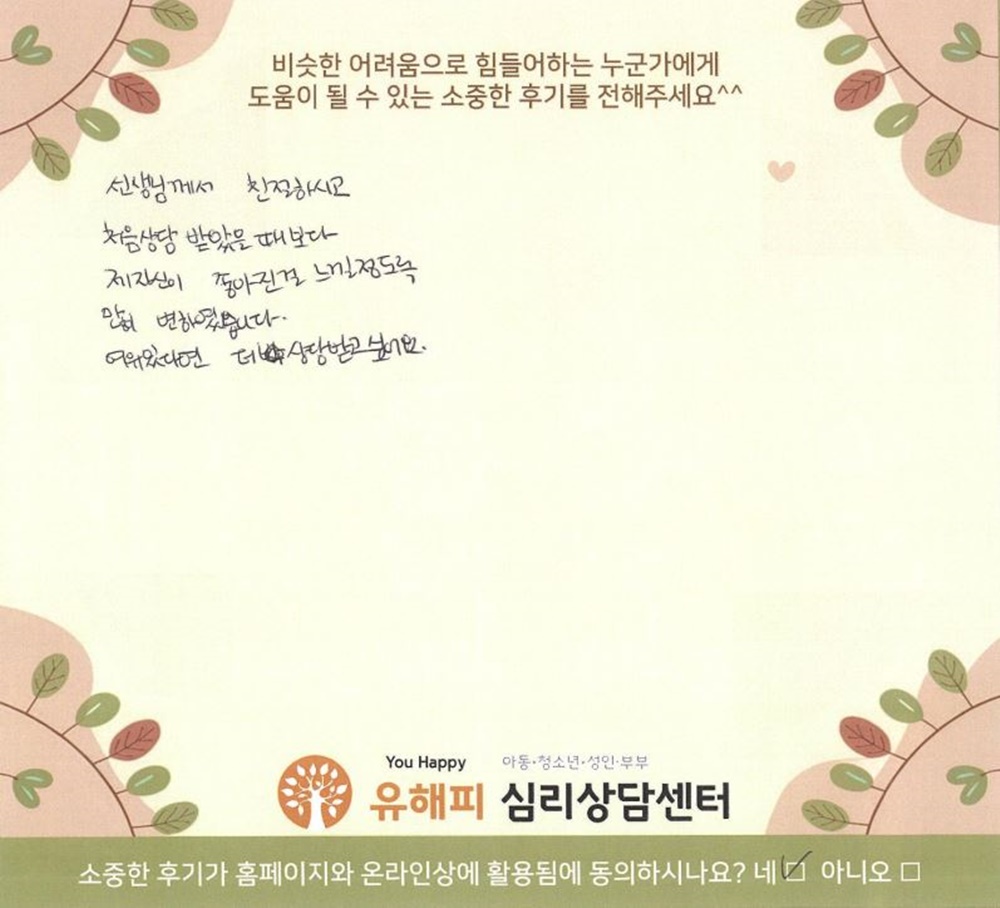 비슷한 어려움으로 힘들어하는 누군가에게
도움이 될 수 있는 소중한 후기를 전해주세요^^
선생님께서 친절하시고
처음상담 받았을 때보다
제자신이 좋아진걸 느낄정도록
많이 변하였습니다.
여유있다면 더 상담받고싶어요.
You Happy 아동·청소년·성인·부부
유해피 심리상담센터
소중한 후기가 홈페이지와 온라인상에 활용됨에 동의하시나요? 네 아니오